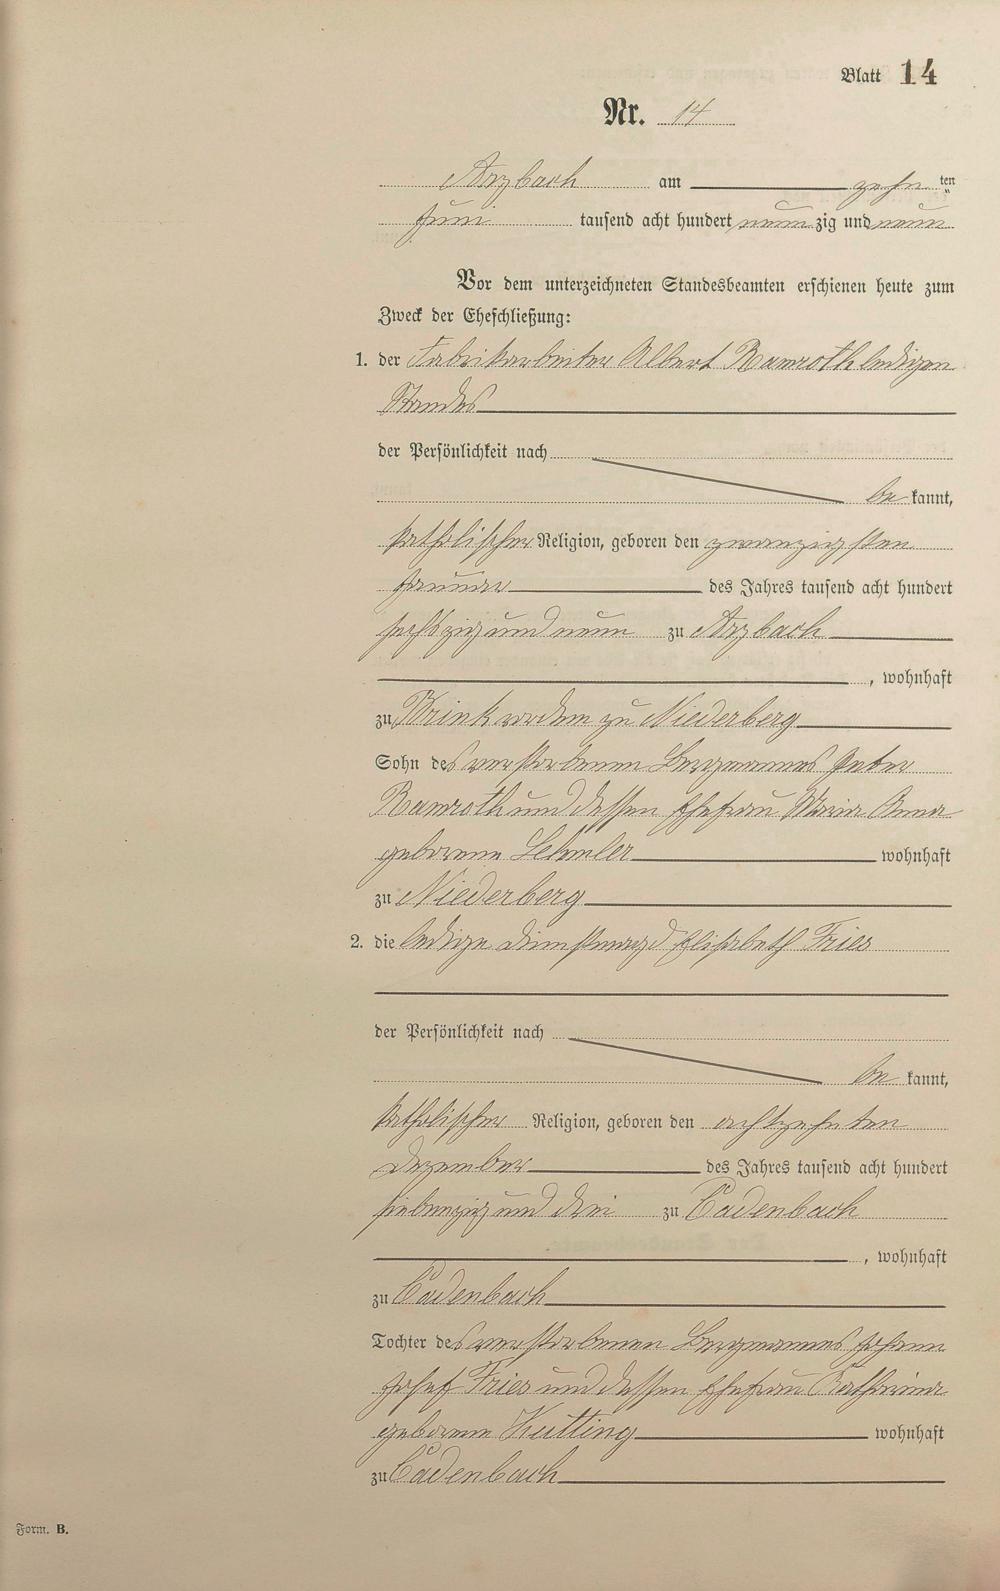 Blatt 14
Nr. 14
Arzbach am zehn ten
Juni tausend acht hundert neun zig und neun
Vor dem unterzeichneten Standesbeamten erschienen heute zum
Zweck der Eheschließung:
1. der Fabrikarbeiter Albert Ramroth ledigen
Standes
der Persönlichkeit nach
be kannt,
katholischer Religion, geboren den zwanzigsten
Januar des Jahres tausend acht hundert
sechszig und neun zu Arzbach
, wohnhaft
zu zu Niederberg
Sohn des verstorbenen Bergmannes Peter
Ramroth und dessen Ehefrau Maria Anna
geborene wohnhaft
zu Niederberg
2. die ledige Dienstmagd Elisabeth Fries
der Persönlichkeit nach
be kannt,
katholischer Religion, geboren den achtzehnten
Dezember des Jahres tausend acht hundert
siebenzig und drei zu Cadenbach
, wohnhaft
zu Cadenbach
Tochter des verstorbenen Bergmannes Johann
Josef Fries und dessen Ehefrau Katharina
geborene wohnhaft
zu Cadenbach
Form. B.